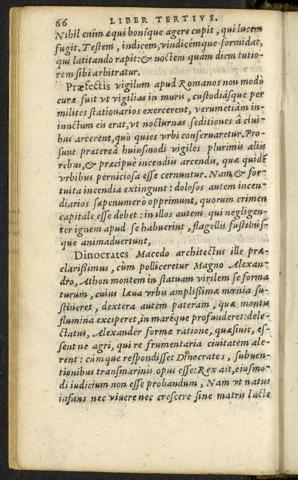 66 LIBER TERTIVS.
Nihil enim æqui boniq́ue agere cupit, qui lucem
fugit. Testem, indicem, vindicémque formidat,
qui latitando rapit: & noctem quàm diem tutio-
rem sibi arbitratur.
Præfectis vigilum apud Romanos non modò
curæ fuit vt vigilias in muris, custodiásque per
milites stationarios exercerent, verumetiam in-
iunctum eis erat, vt nocturnas seditiones à ciui-
bus arcerent, quò quies vrbi conseruaretur. Pro-
sunt præterea huiusmodi vigiles plurimis aliis
rebus, & præcipuè incendiis arcendis, quæ quidẽ
vrbibus perniciosa esse cernuntur. Nam & for-
tuita incendia extingunt: dolosos autem incen-
diarios sæpenumero opprimunt, quorum crimen
capitale esse debet: in illos autem qui negligen-
ter ignem apud se habuerint, flagellis fustibús-
que animaduertunt,
Dinocrates Macedo architectus ille præ-
clarissimus, cùm polliceretur Magno Alexan-
dro, Athon montem in statuam virilem se forma
turum, cuius læua vrbi amplissimæ mœnia su-
stineret, dextera autem pateram, quæ montis
flumina exciperet, in maréque profunderet: dele-
ctatus, Alexander formæ ratione, quæsiuit, es-
sent ne agri, qui re frumentaria ciuitatem ale-
rent: cùmque respondisset Dinocrates, subuen-
tionibus transmarinis opus esse: Rex ait, eiusmo-
di iudicium non esse probandum, Nam vt natus
infans nec viuere nec crescere sine matris lacte